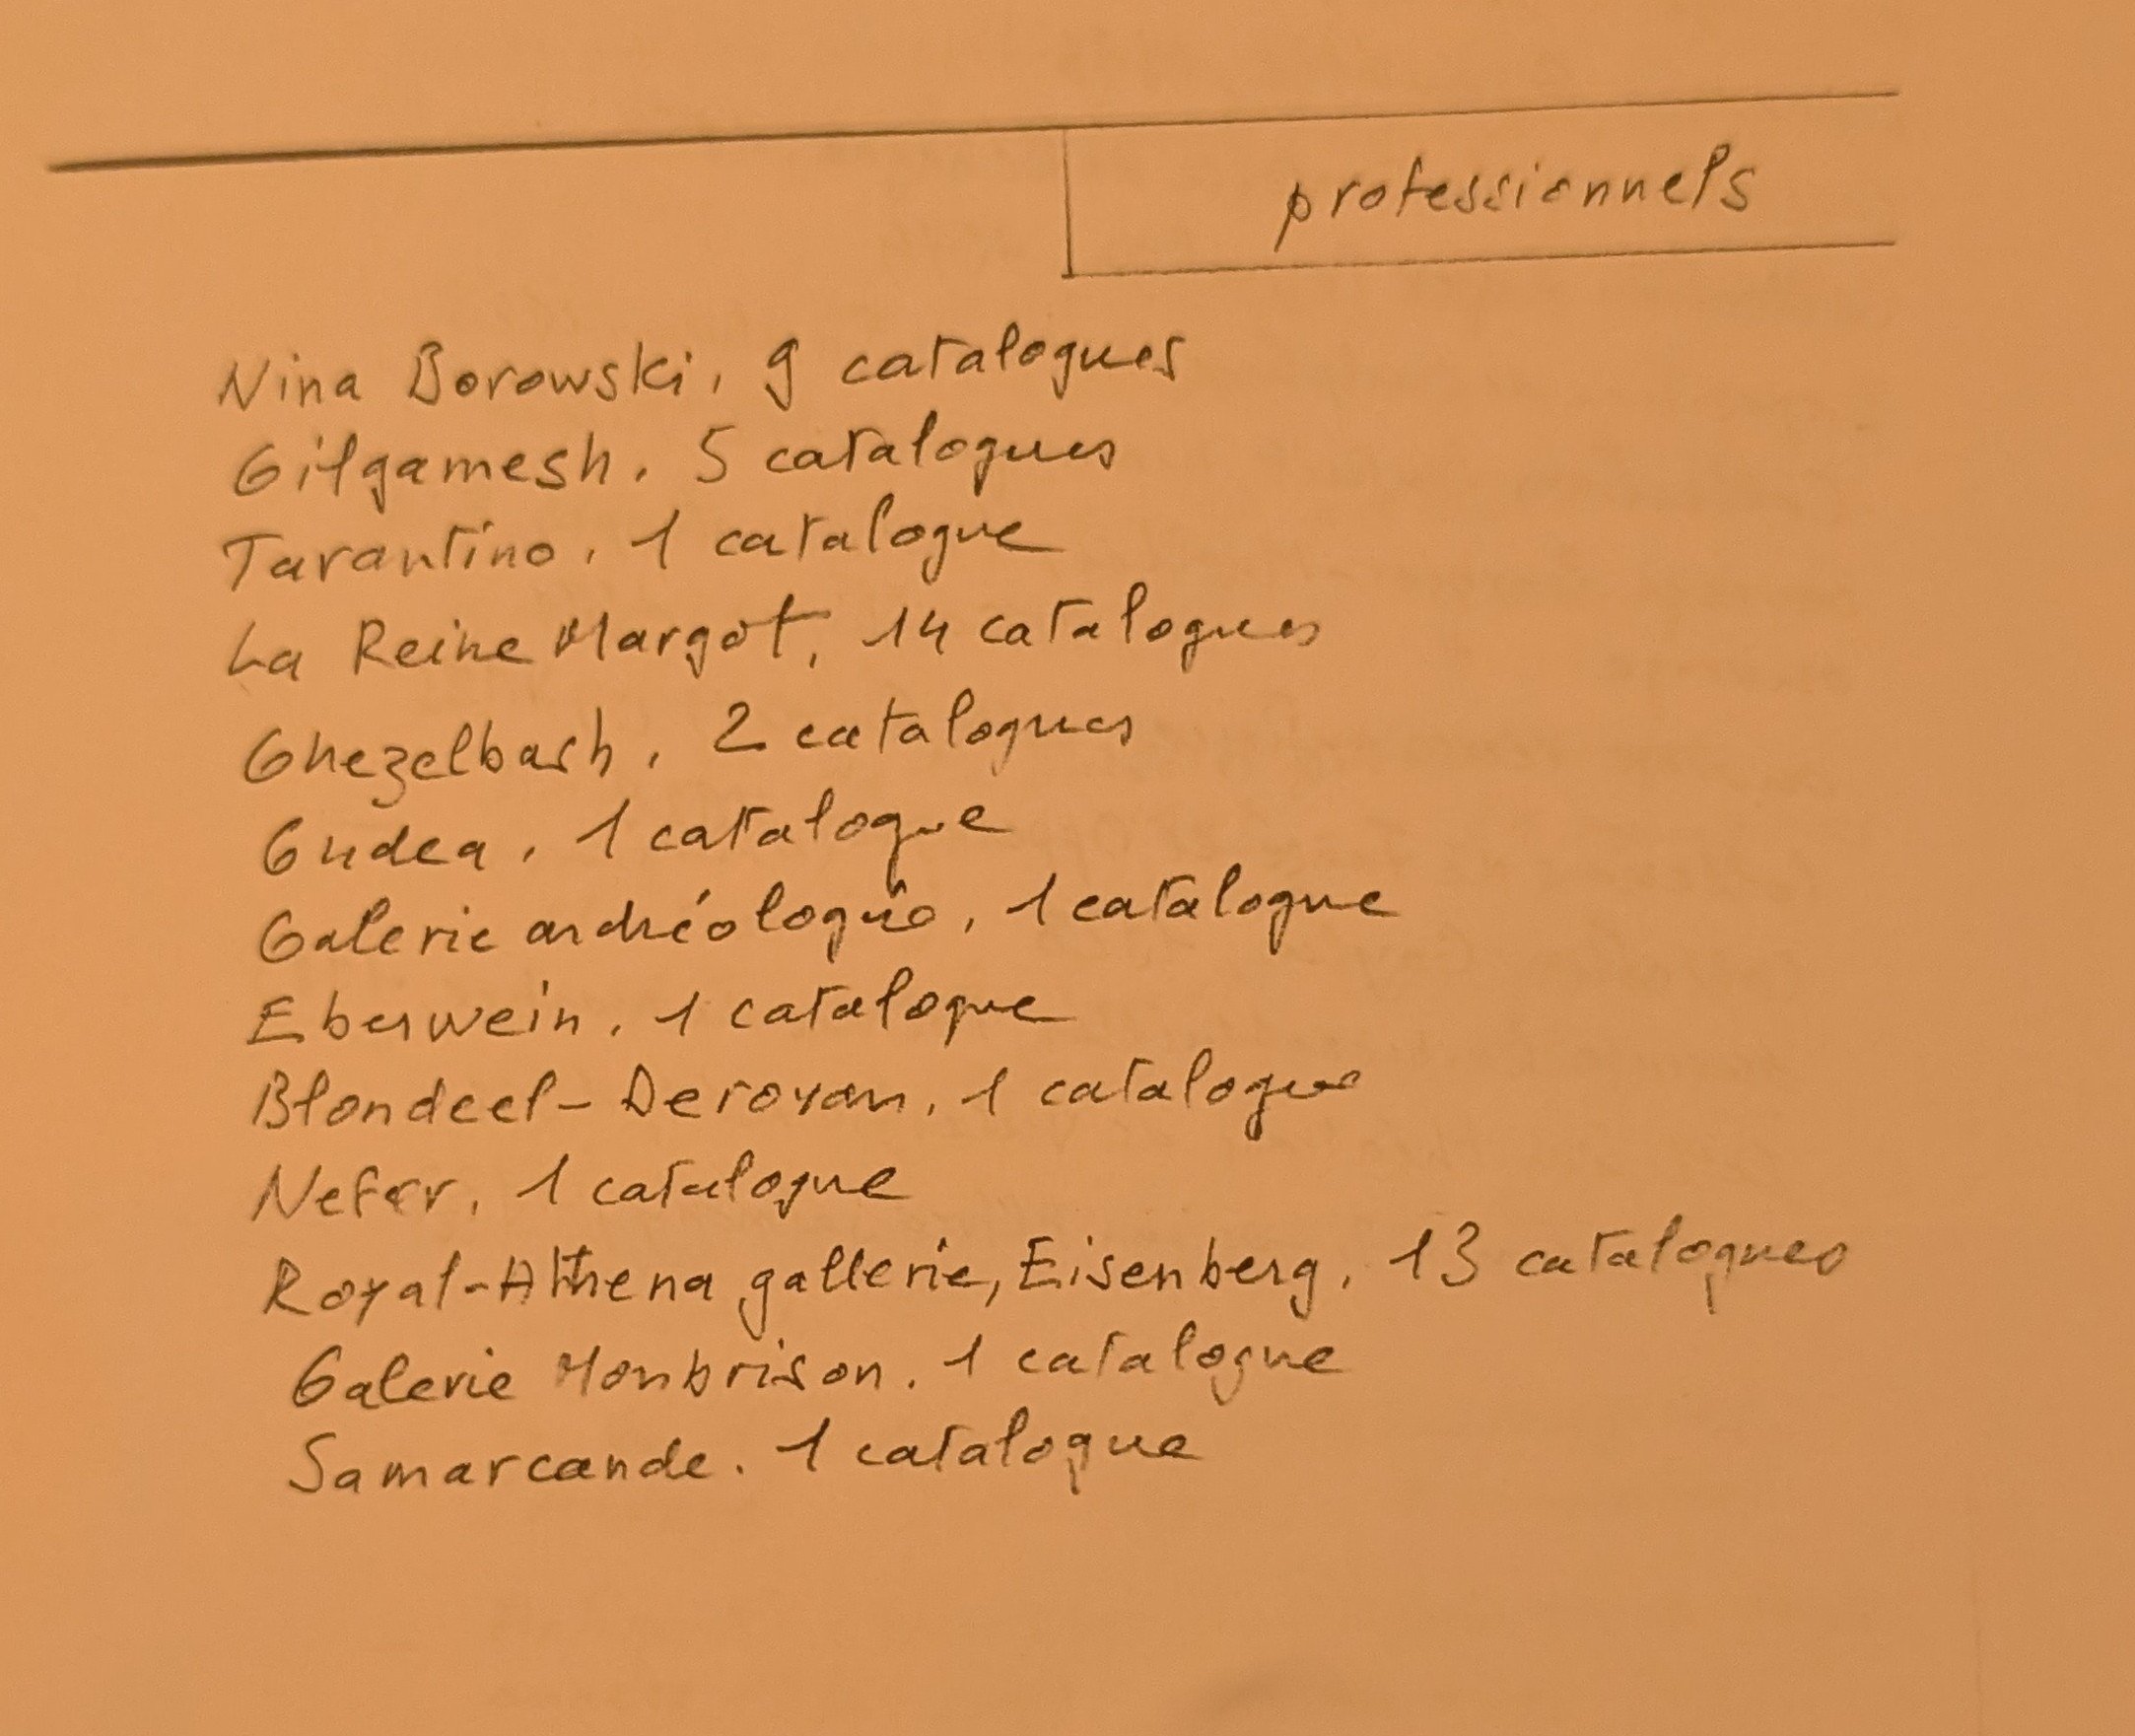 professionnels
Nina Borowski, 9 catalogues
Gilgamesh. 5 catalogues
Tarantino, 1 catalogue
La Reine Margot, 14 catalogues
Ghezelbash, 2 catalogues
Gudea, 1 catalogue
Galerie archéologie, 1 catalogue
Eberwein, 1 catalogue
Blondeel-Deroyan, 1 catalogue
Nefer, 1 catalogue
Royal-Athena gallerie, Eisenberg, 13 catalogues
Galerie Monbrison. 1 catalogue
Samarcande. 1 catalogue